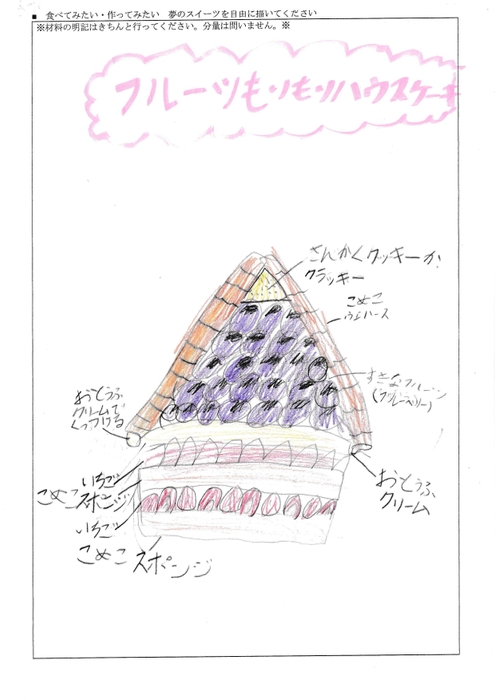 ■ 食べてみたい・作ってみたい 夢のスイーツを自由に描いてください
※材料の明記はきちんと行ってください。分量は問いません。※
フルーツもりもりハウスケーキ
さんかくクッキーか
クラッキー
こめこ
ウエハース
すきなフルーツ
(ブルーベリー)
おとうふ
クリームで
くっつける
いちご
こめこスポンジ
いちご
こめこ スポンジ
おとうふ
クリーム